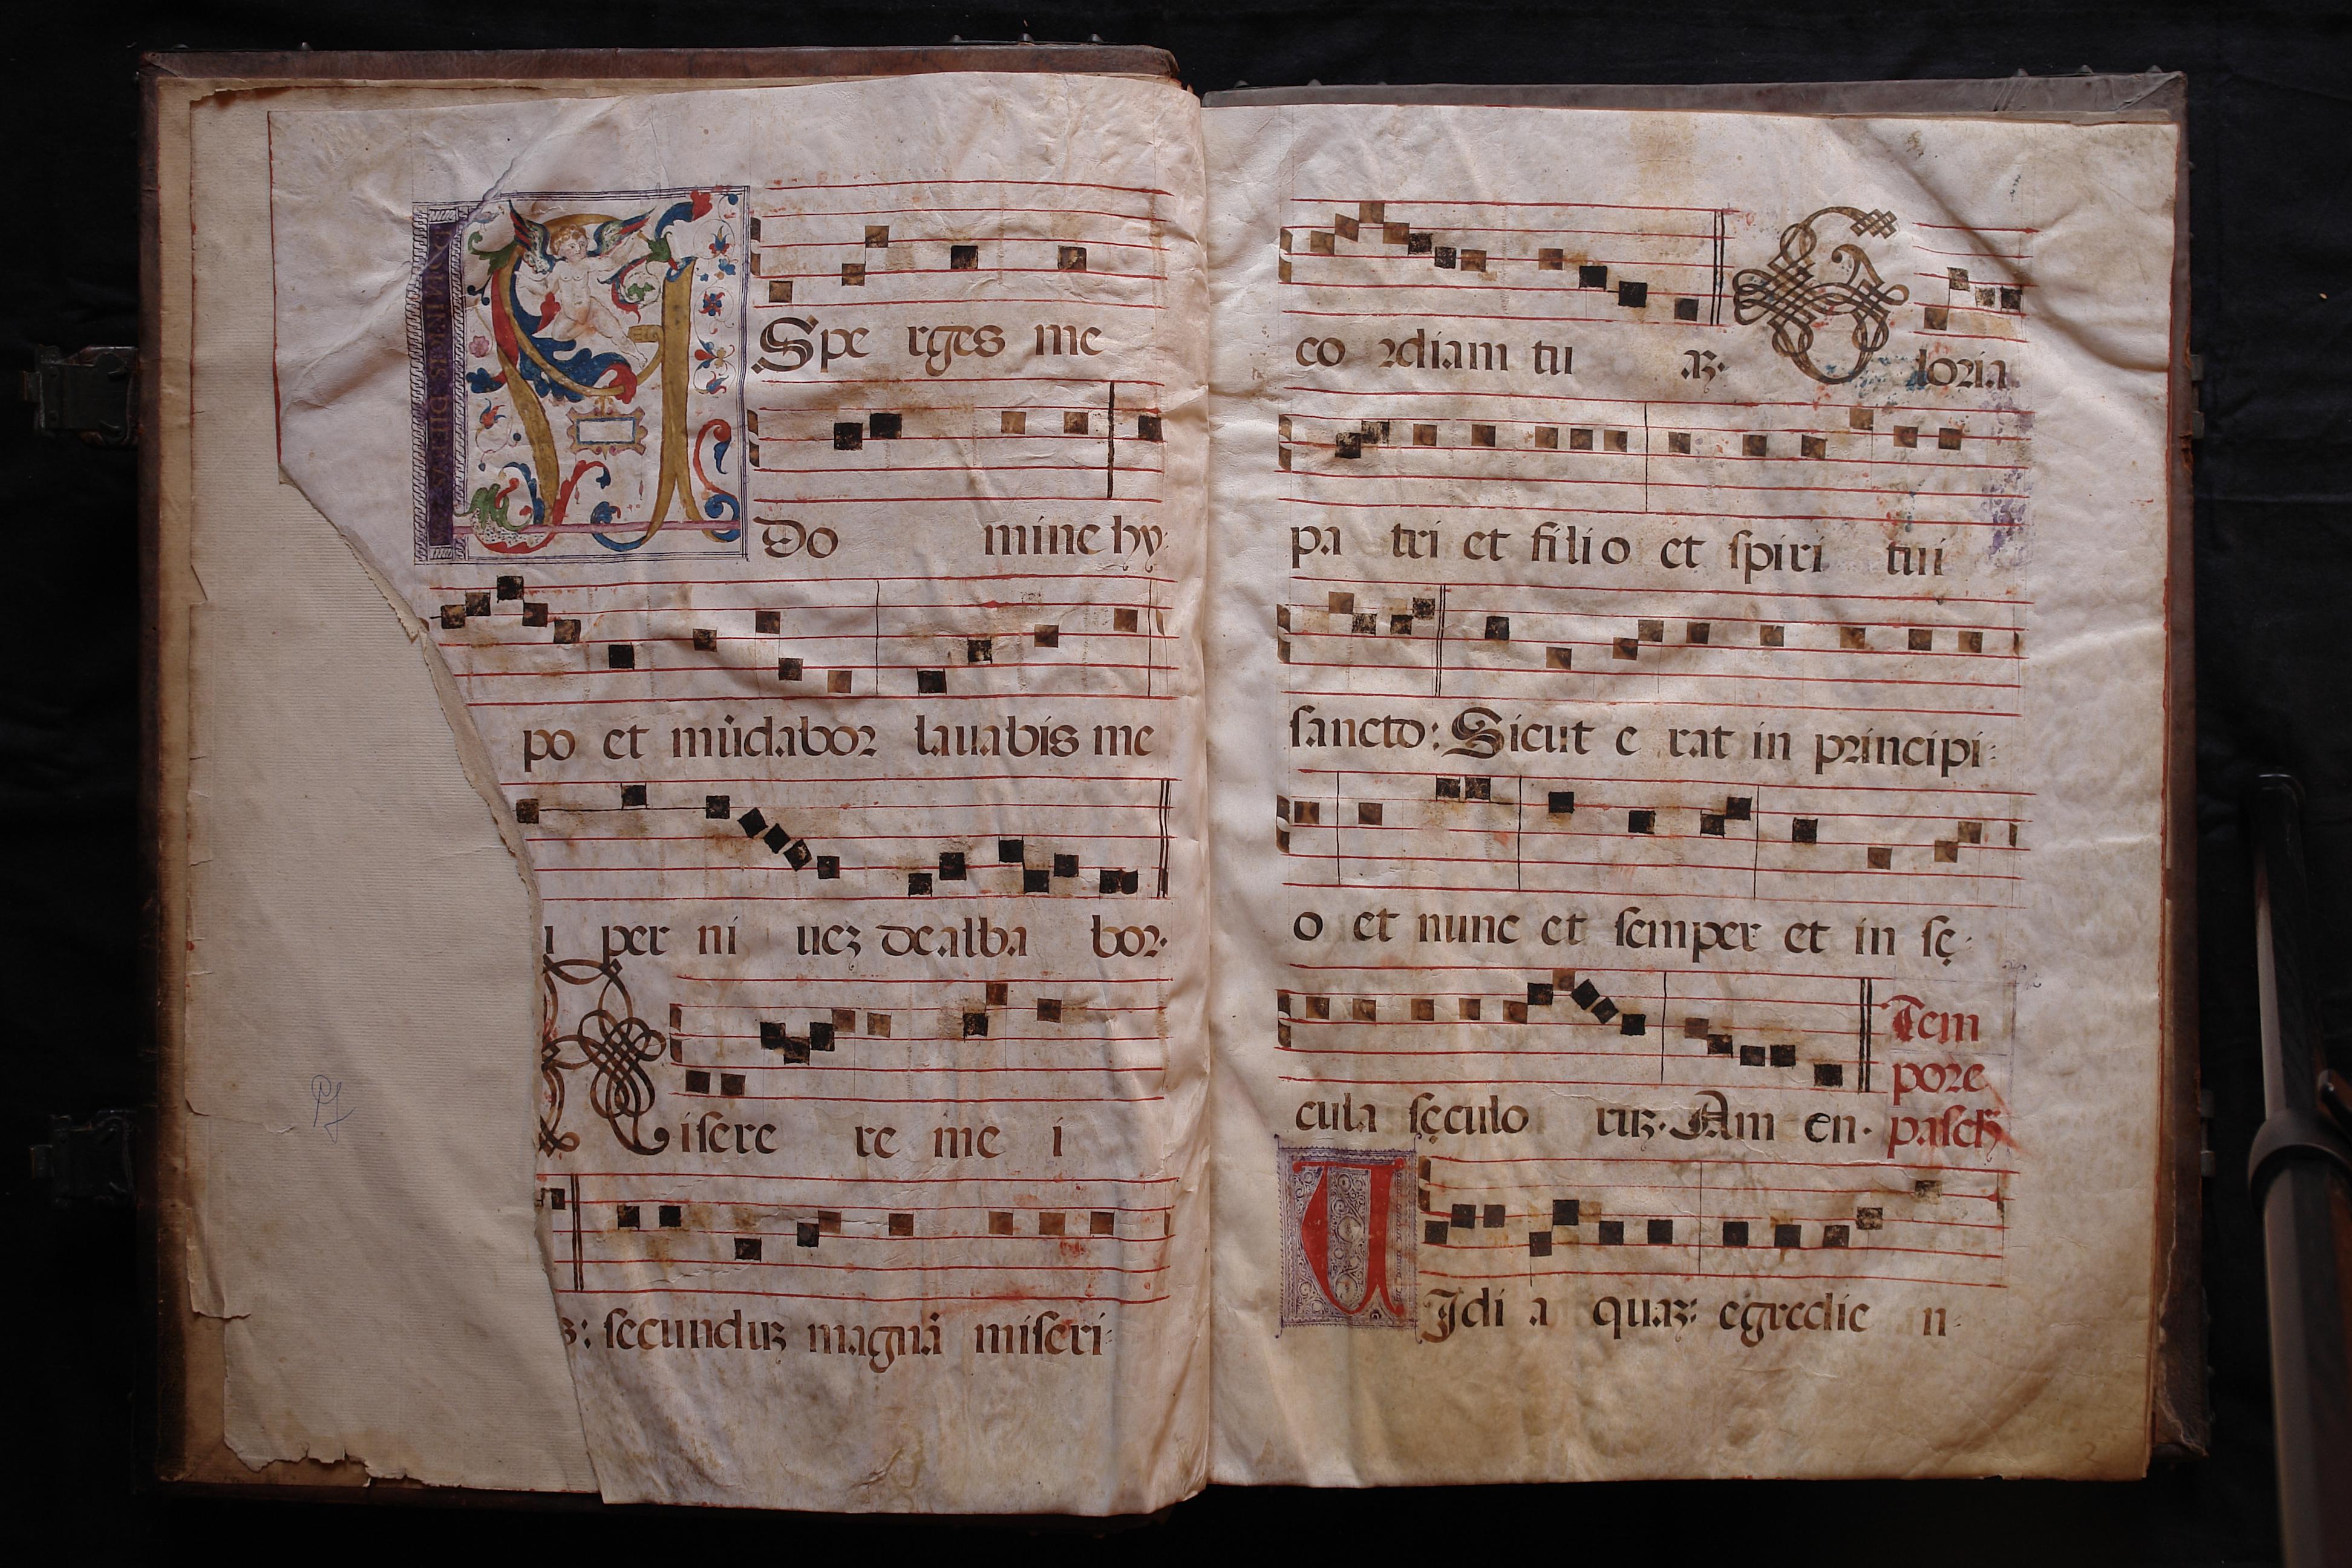 Spe rges me
Do mine hy-
po et mūdabor lauabis me
per ni uez dealba bor.
Misere re me i
secunduz magnā miseri-
co rdiam tu az. Gloria
pa tri et filio et spiri tui
sancto: Sicut e rat in principi-
o et nunc et semper et in sę-
cula sęculo ruz. Am en.
Tem
pore
pasch
UIdi a quaz: egredie n-